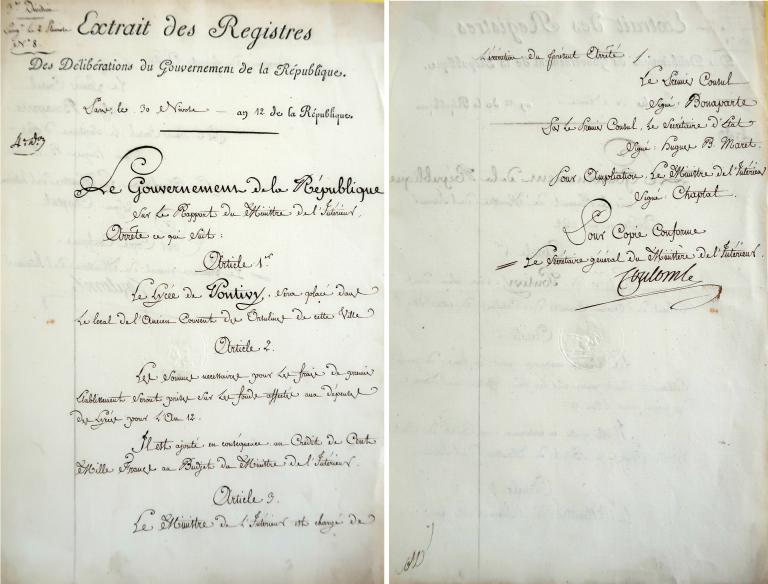 N° 8.
Extrait des Registres
Des Délibérations du Gouvernement de la République.
Paris, le 30 Nivose an 12 de la République.
Le Gouvernement de la République
Sur le Rapport du Ministre de l'Intérieur,
Arrête ce qui suit :
Article 1er
Le Lycée de Pontivy, sera placé dans
le local de l'Ancien Couvent des Ursulines de cette Ville
Article 2.
Les sommes necessaires pour les frais de premier
Etablissement seront prises sur les fonds affectés aux dépenses
des Lycées pour l'An 12.
Il est ajouté en conséquence un Crédit de Cent
Mille Francs au Budget du Ministre de l'Intérieur.
Article 3.
Le Ministre de l'Intérieur est chargé de
l'éxécution du présent Arrêté /.
Le Premier Consul
Signé Bonaparte
Par le Premier Consul, le Secrétaire d'Etat
Signé: Hugues B. Maret.
Pour Ampliation: le Ministre de l'Intérieur
Signé: Chaptal.
Pour Copie Conforme
Le Secrétaire général du Ministère de l'Intérieur.
Coulomb